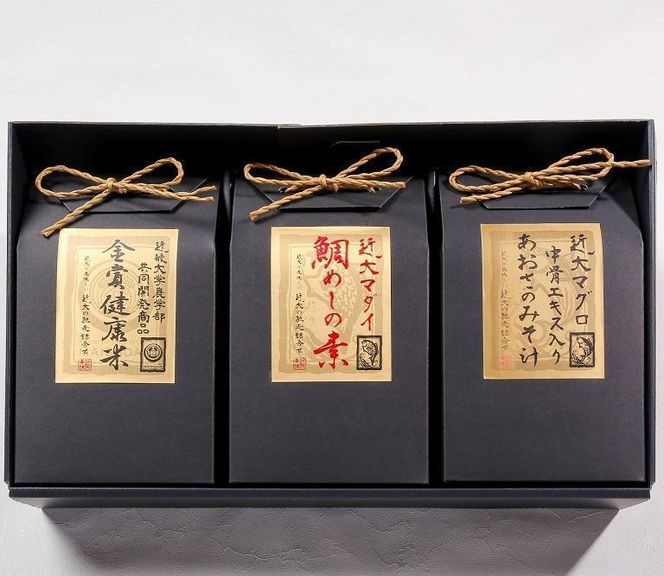 近畿大学農学部
共同開発商品
金賞健康米
近大マダイ
鯛めしの素
近大マグロ
中骨エキス入り
あおさのみそ汁